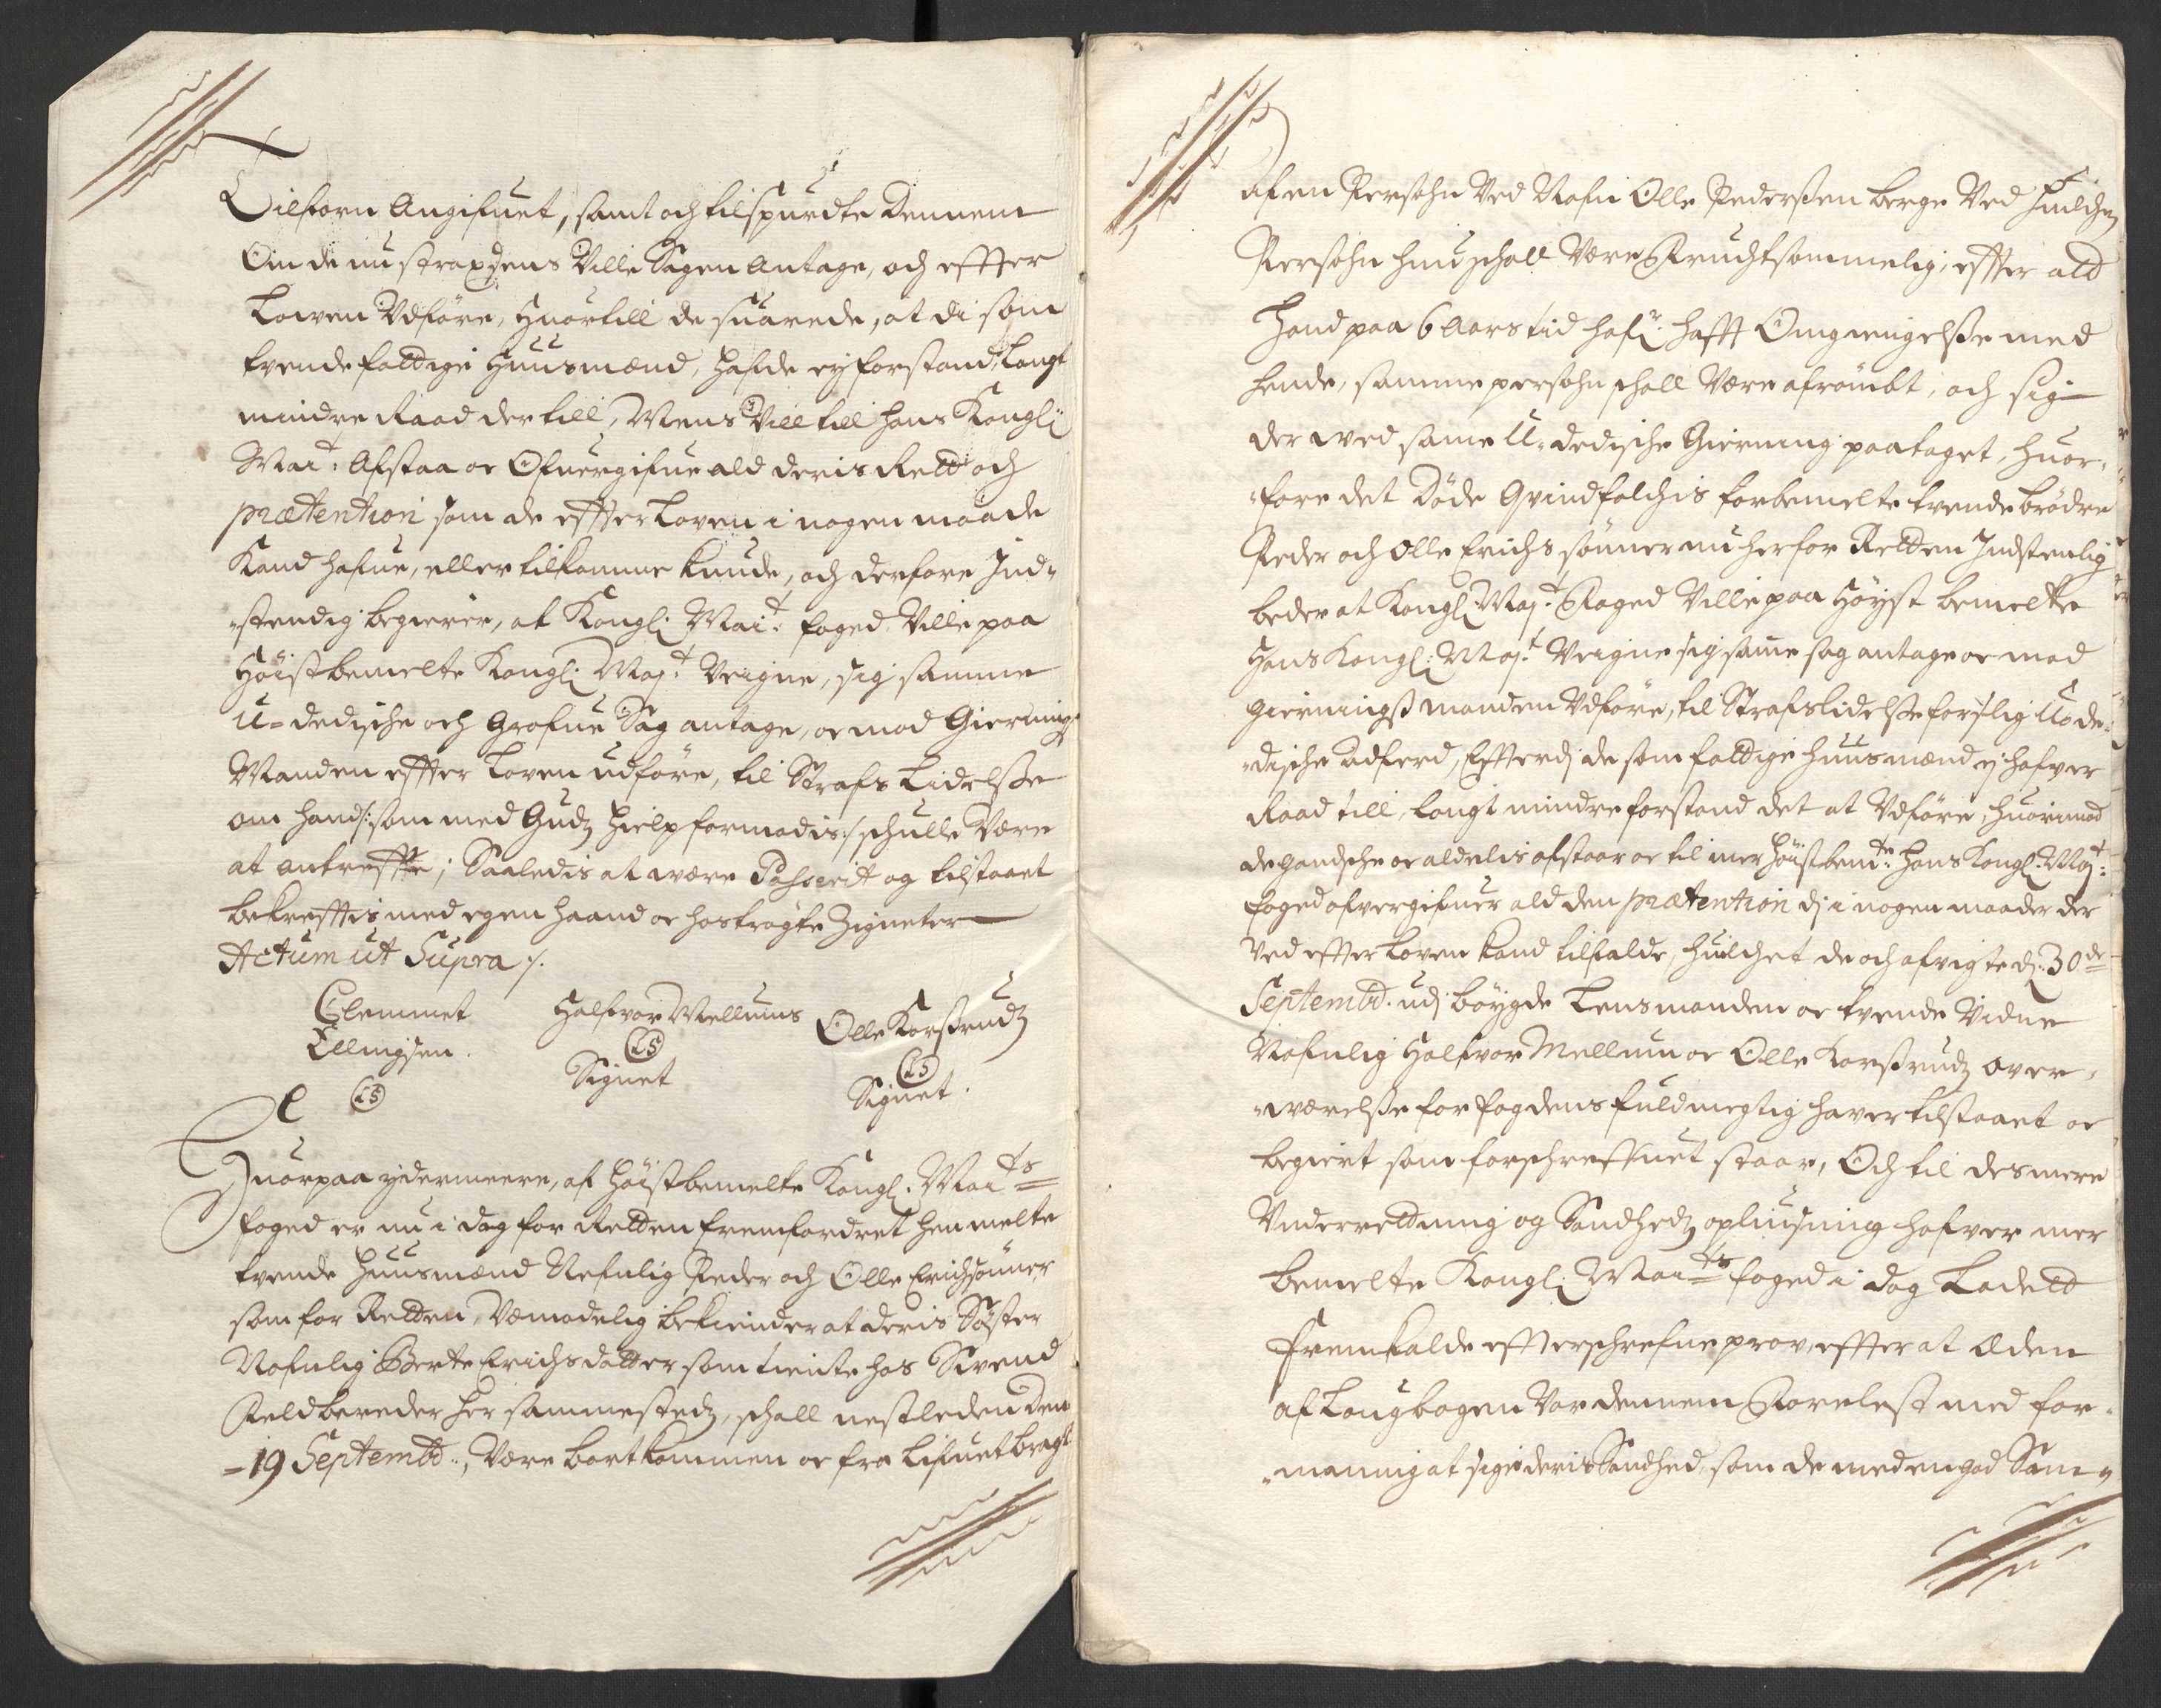 Tilforn Angifuet, samt och tilspurdte Dennem
Om de nu strax dens Ville Sagen Antage, och effter
Lowen Vdføre, Huortill de suarede, at di som
tvende faltige Huusmænd, hafde ey forstand, langt
mindre Raad dertill, Mens Vill till Hans Kongl:
Mai:t Afstaa oc Ofuergifue ald deris Rett och
prætention som de effter Loven i nogen maade
Kand hafue, eller tilkomme kunde, och derfore Ind-
-stendig begierer, at Kongl: Mai:t foged Ville paa
Høistbemelte Kongl: Maj:t Veigne, sig samme
U-dedische och Grofue Sag antage, oc mod Giernings
Manden effter Loven udføre, til Strafs Lidelsse
om hand /:som med Gudz hielp formodis:/ schulle Være
at antreffe; Saaledis at være Passerit og tilstaaet
bekrefftis med egen haand oc hostrøgte Zigneter
Actum ut Supra ./.
Clemmet Halfvor Mellums Olle Korsrudz
Ellingsen. (LS) (LS)
(LS) Signet Signet.
Huorpaa ydermeere, af høistbemelte Kongl: Mai:ts
foged er nu i dag for Retten fremfordret bemelte
tvende Huusmænd Nefnlig Peder och Olle Erichsønner
som for Retten, Vemodelig bekiender at deris Søster
Nafnlig Berte Erichsdatter som tiente hos Svend
Feldbereder her sammestedz, schall nestleden Den
-19 Septembr:, Være bortkommen oc fra Lifuet bragt
af en Persohn Ved Nafn Olle Pederssen Berge Ved huilchen
Persohn hun schall Være Fruchtsommelig, effter ald
Hand paa 6 Aars tid haf: hafft Omgiengelsse med
hende, samme persohn schall Være afrømbt, och sig
der wed same U-dedische Gierning paataget, huor-
-fore det Døde Qvindfolchis forbemelte tvende brødre
Peder och Olle Erichs sønner nu her for Retten Indstenlig
beder at Kongl: Maj:t Foged Ville paa Høyst bemelte
Hans Kongl: Maj:t Veigne sig same sag antage oc mod
Gierningss manden Vdføre, til Strafs lidelsse for slig Ude-
-dische Adferd, Effterdj de som faltige huusmænd ej hafver
Raad till, langt mindre forstand det at Vdføre, huorimod
de gandsche oc aldelis afstaar oc til mer høistbem:te Hans Kongl: Maj:t
foged ofvergifuer ald den prætention dj i nogen maader der
Ved effter Loven kand tilfalde, huilchet de och afvigte d: 30de
Septembr: udj bøygde Lensmanden oc tvende Vidne
Nafnlig Halfvor Mellum oc Olle Korsrudz over-
-værelsse for fogdens fuldmegtig haver tilstaaet oc
begiert som forschreffuet staar, Och til des mere
Vnderrettning og Sandhedz opliusning hafver mer
bemelte Kongl: Mai:ts foged i dag Ladett
Fremkalde effterschrefne prov, effter at Eden
af Lougbogen Var dennem Forelest med for-
-maning at sige deris Sandhed, som de med en god Sam-